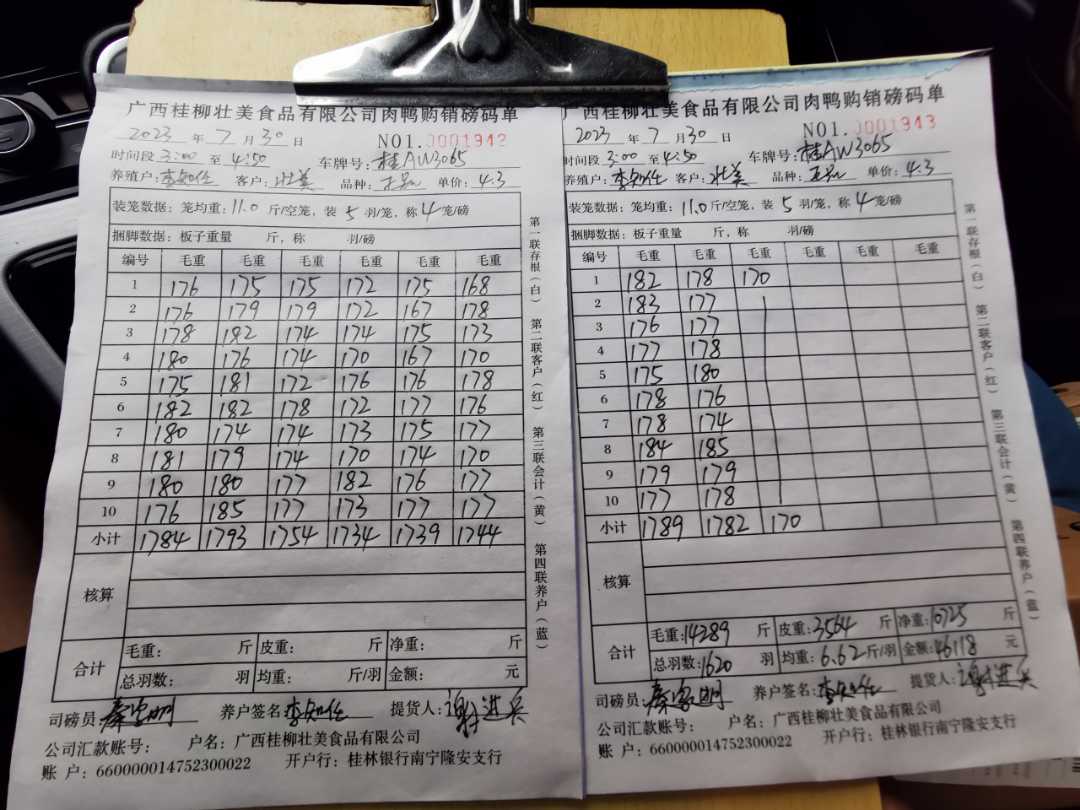 广西桂柳壮美食品有限公司肉鸭购销磅码单
2023 年 7 月 30 日 NO1.0001942
时间段 3:00 至 4:50 车牌号:桂AW3065
养殖户:李知任 客户:壮美 品种: 单价:4.3
装笼数据:笼均重:11.0斤/空笼,装5羽/笼,称4笼/磅
捆脚数据:板子重量 斤,称 羽/磅
编号 毛重 毛重 毛重 毛重 毛重 毛重
1 176 175 175 172 175 168
2 176 179 179 172 167 178
3 178 182 174 174 175 173
4 180 176 174 170 167 170
5 175 181 172 176 176 178
6 182 182 178 172 177 176
7 180 174 174 173 175 177
8 181 179 174 170 174 170
9 180 180 177 182 176 177
10 176 185 177 173 177 177
小计 1784 1793 1754 1734 1739 1744
核算
合计 毛重: 斤 皮重: 斤 净重: 斤
总羽数: 羽 均重: 斤/羽 金额: 元
司磅员: 养户签名:李知任 提货人:谢进兵
公司汇款账号: 户名:广西桂柳壮美食品有限公司
账 户:660000014752300022 开户行:桂林银行南宁隆安支行
第一联存根(白) 第二联客户(红) 第三联会计(黄) 第四联养户(蓝)
广西桂柳壮美食品有限公司肉鸭购销磅码单
2023 年 7 月 30 日 NO1.0001943
时间段 3:00 至 4:50 车牌号:桂AW3065
养殖户:李知任 客户:壮美 品种: 单价:4.3
装笼数据:笼均重:11.0斤/空笼,装5羽/笼,称4笼/磅
捆脚数据:板子重量 斤,称 羽/磅
编号 毛重 毛重 毛重 毛重 毛重 毛重
1 182 178 170
2 183 177
3 176 177
4 177 178
5 175 180
6 178 176
7 178 174
8 184 185
9 179 179
10 177 178
小计 1789 1782 170
核算
合计 毛重:14289 斤 皮重:3564 斤 净重:10725 斤
总羽数:1620 羽 均重:6.62斤/羽 金额:46118 元
司磅员: 养户签名:李知任 提货人:谢进兵
公司汇款账号: 户名:广西桂柳壮美食品有限公司
账 户:660000014752300022 开户行:桂林银行南宁隆安支行
第一联存根(白) 第二联客户(红) 第三联会计(黄) 第四联养户(蓝)